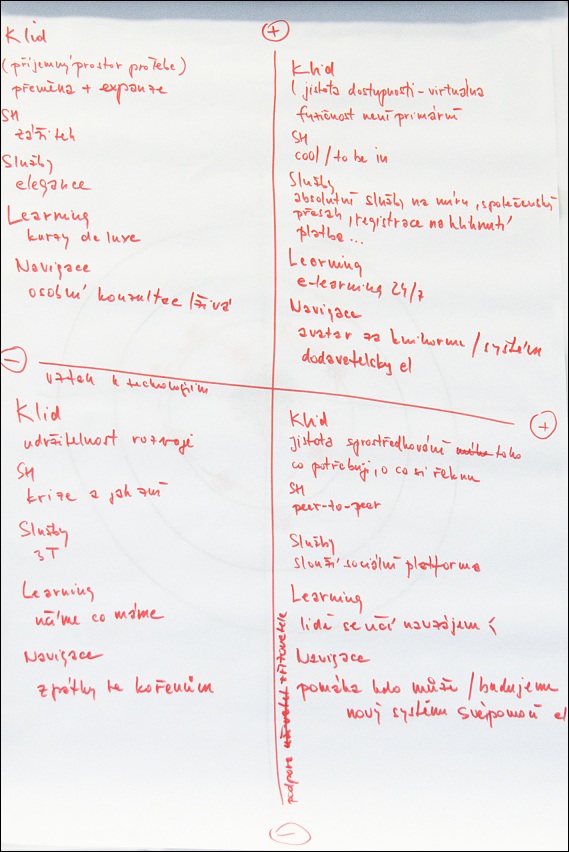 +
Klid
(příjemný prostor pro Tebe)
přeměna + expanze
SH
zážitek
Služby
elegance
Learning
kurzy de luxe
Navigace
osobní konzultace / živá
Klid
( jistota dostupnosti - virtuálna
fyzičnost není primární
SH
cool / to be in
Služby
absolutní služby na míru, společenský
přesah, registrace na kliknutí
platba ...
Learning
e-learning 24/7
Navigace
avatar za knihovnu / systém
dodavatelsky el
-
vztah k technologiím
+
Klid
udržitelnost rozvoje
SH
krize a jak z ní
Služby
3T
Learning
učíme co máme
Navigace
zpátky ke kořenům
Klid
jistota zprostředkování toho
co potřebuji, o co si řeknu
SH
peer-to-peer
Služby
slouží sociální platforma
Learning
lidé se učí navzájem
Navigace
pomáhá kdo může / budujeme
nový systém svépomocí el
podpora zřizovatele
-